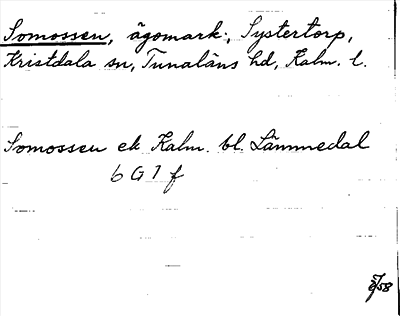 Somossen, ägomark; Systertorp,
Kristdala sn, Tunaläns hd, Kalm. l.
Somossen ek Kalm. bl. Lämmedal
6 G 7 f